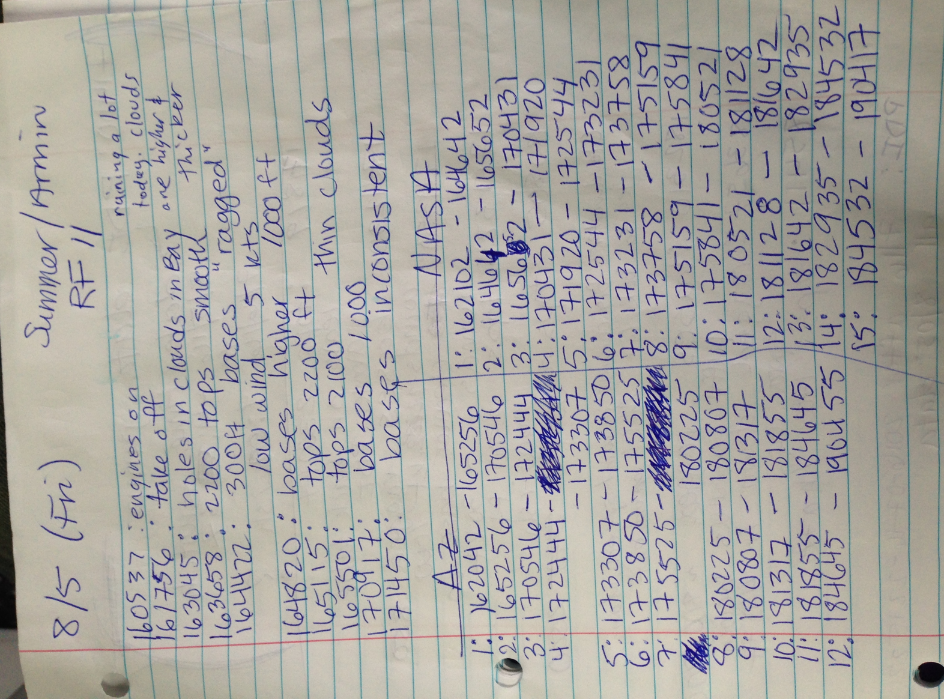 8/5 (Fri)
Summer/Armin
RF 11
raining a lot
today: clouds
are higher &
thicker
160537 : engines on
161756 : take off
163045 : holes in clouds in Bay
163658 : 2200 tops smooth
164422 : 300ft bases "ragged"
low wind 5 kts
164820 : bases higher 1000 ft
165115 : tops 2200 ft
165501 : tops 2100 thin clouds
170917 : bases 1000
171450 : bases inconsistent
AZ
1: 162042 - 165256
2: 165256 - 170546
3: 170546 - 172444
4: 172444 -
- 173307
5: 173307 - 173850
6: 173850 - 175525
7: 175525 -
180225
8: 180225 - 180807
9: 180807 - 181317
10: 181317 - 181855
11: 181855 - 184645
12: 184645 - 190455
NASA
1: 162102 - 164642
2: 164642 - 165652
3: 165652 - 170431
4: 170431 - 171920
5: 171920 - 172544
6: 172544 - 173231
7: 173231 - 173758
8: 173758 - 175159
9: 175159 - 175841
10: 175841 - 180521
11: 180521 - 181128
12: 181128 - 181642
13: 181642 - 182935
14: 182935 - 184532
15: 184532 - 190417